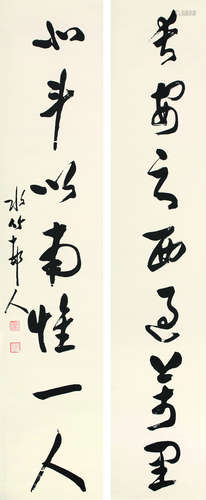 長安之西過萬里
北斗以南惟一人
水竹邨人